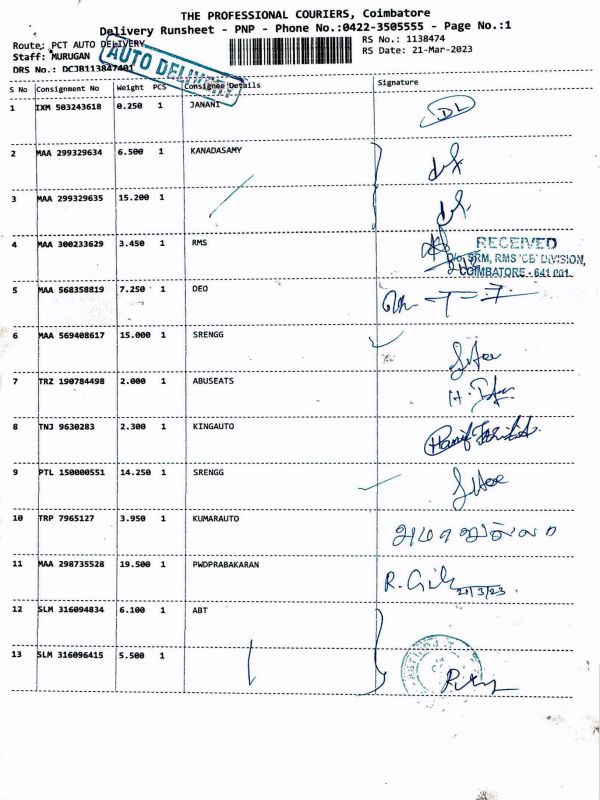 THE PROFESSIONAL COURIERS, Coimbatore
Delivery Runsheet - PNP - Phone No.:0422-3505555 - Page No.:1
Route: PCT AUTO DELIVERY
RS No.: 1138474
Staff: MURUGAN
RS Date: 21-Mar-2023
DRS No.: DCJB113847401
AUTO DELIVERY
S No Consignment No Weight PCS Consignee Details Signature
1 IXM 503243618 0.250 1 JANANI DL
2 MAA 299329634 6.500 1 KANADASAMY
3 MAA 299329635 15.200 1
4 MAA 300233629 3.450 1 RMS
RECEIVED
O/o. SRM, RMS 'CB' DIVISION,
COIMBATORE - 641 001.
5 MAA 568358819 7.250 1 DEO
6 MAA 569408617 15.000 1 SRENGG
7 TRZ 190784498 2.000 1 ABUSEATS
8 TNJ 9630283 2.300 1 KINGAUTO
9 PTL 150000551 14.250 1 SRENGG
10 TRP 7965127 3.950 1 KUMARAUTO
11 MAA 298735528 19.500 1 PWDPRABAKARAN
21/3/23
12 SLM 316094834 6.100 1 ABT
13 SLM 316096415 5.500 1